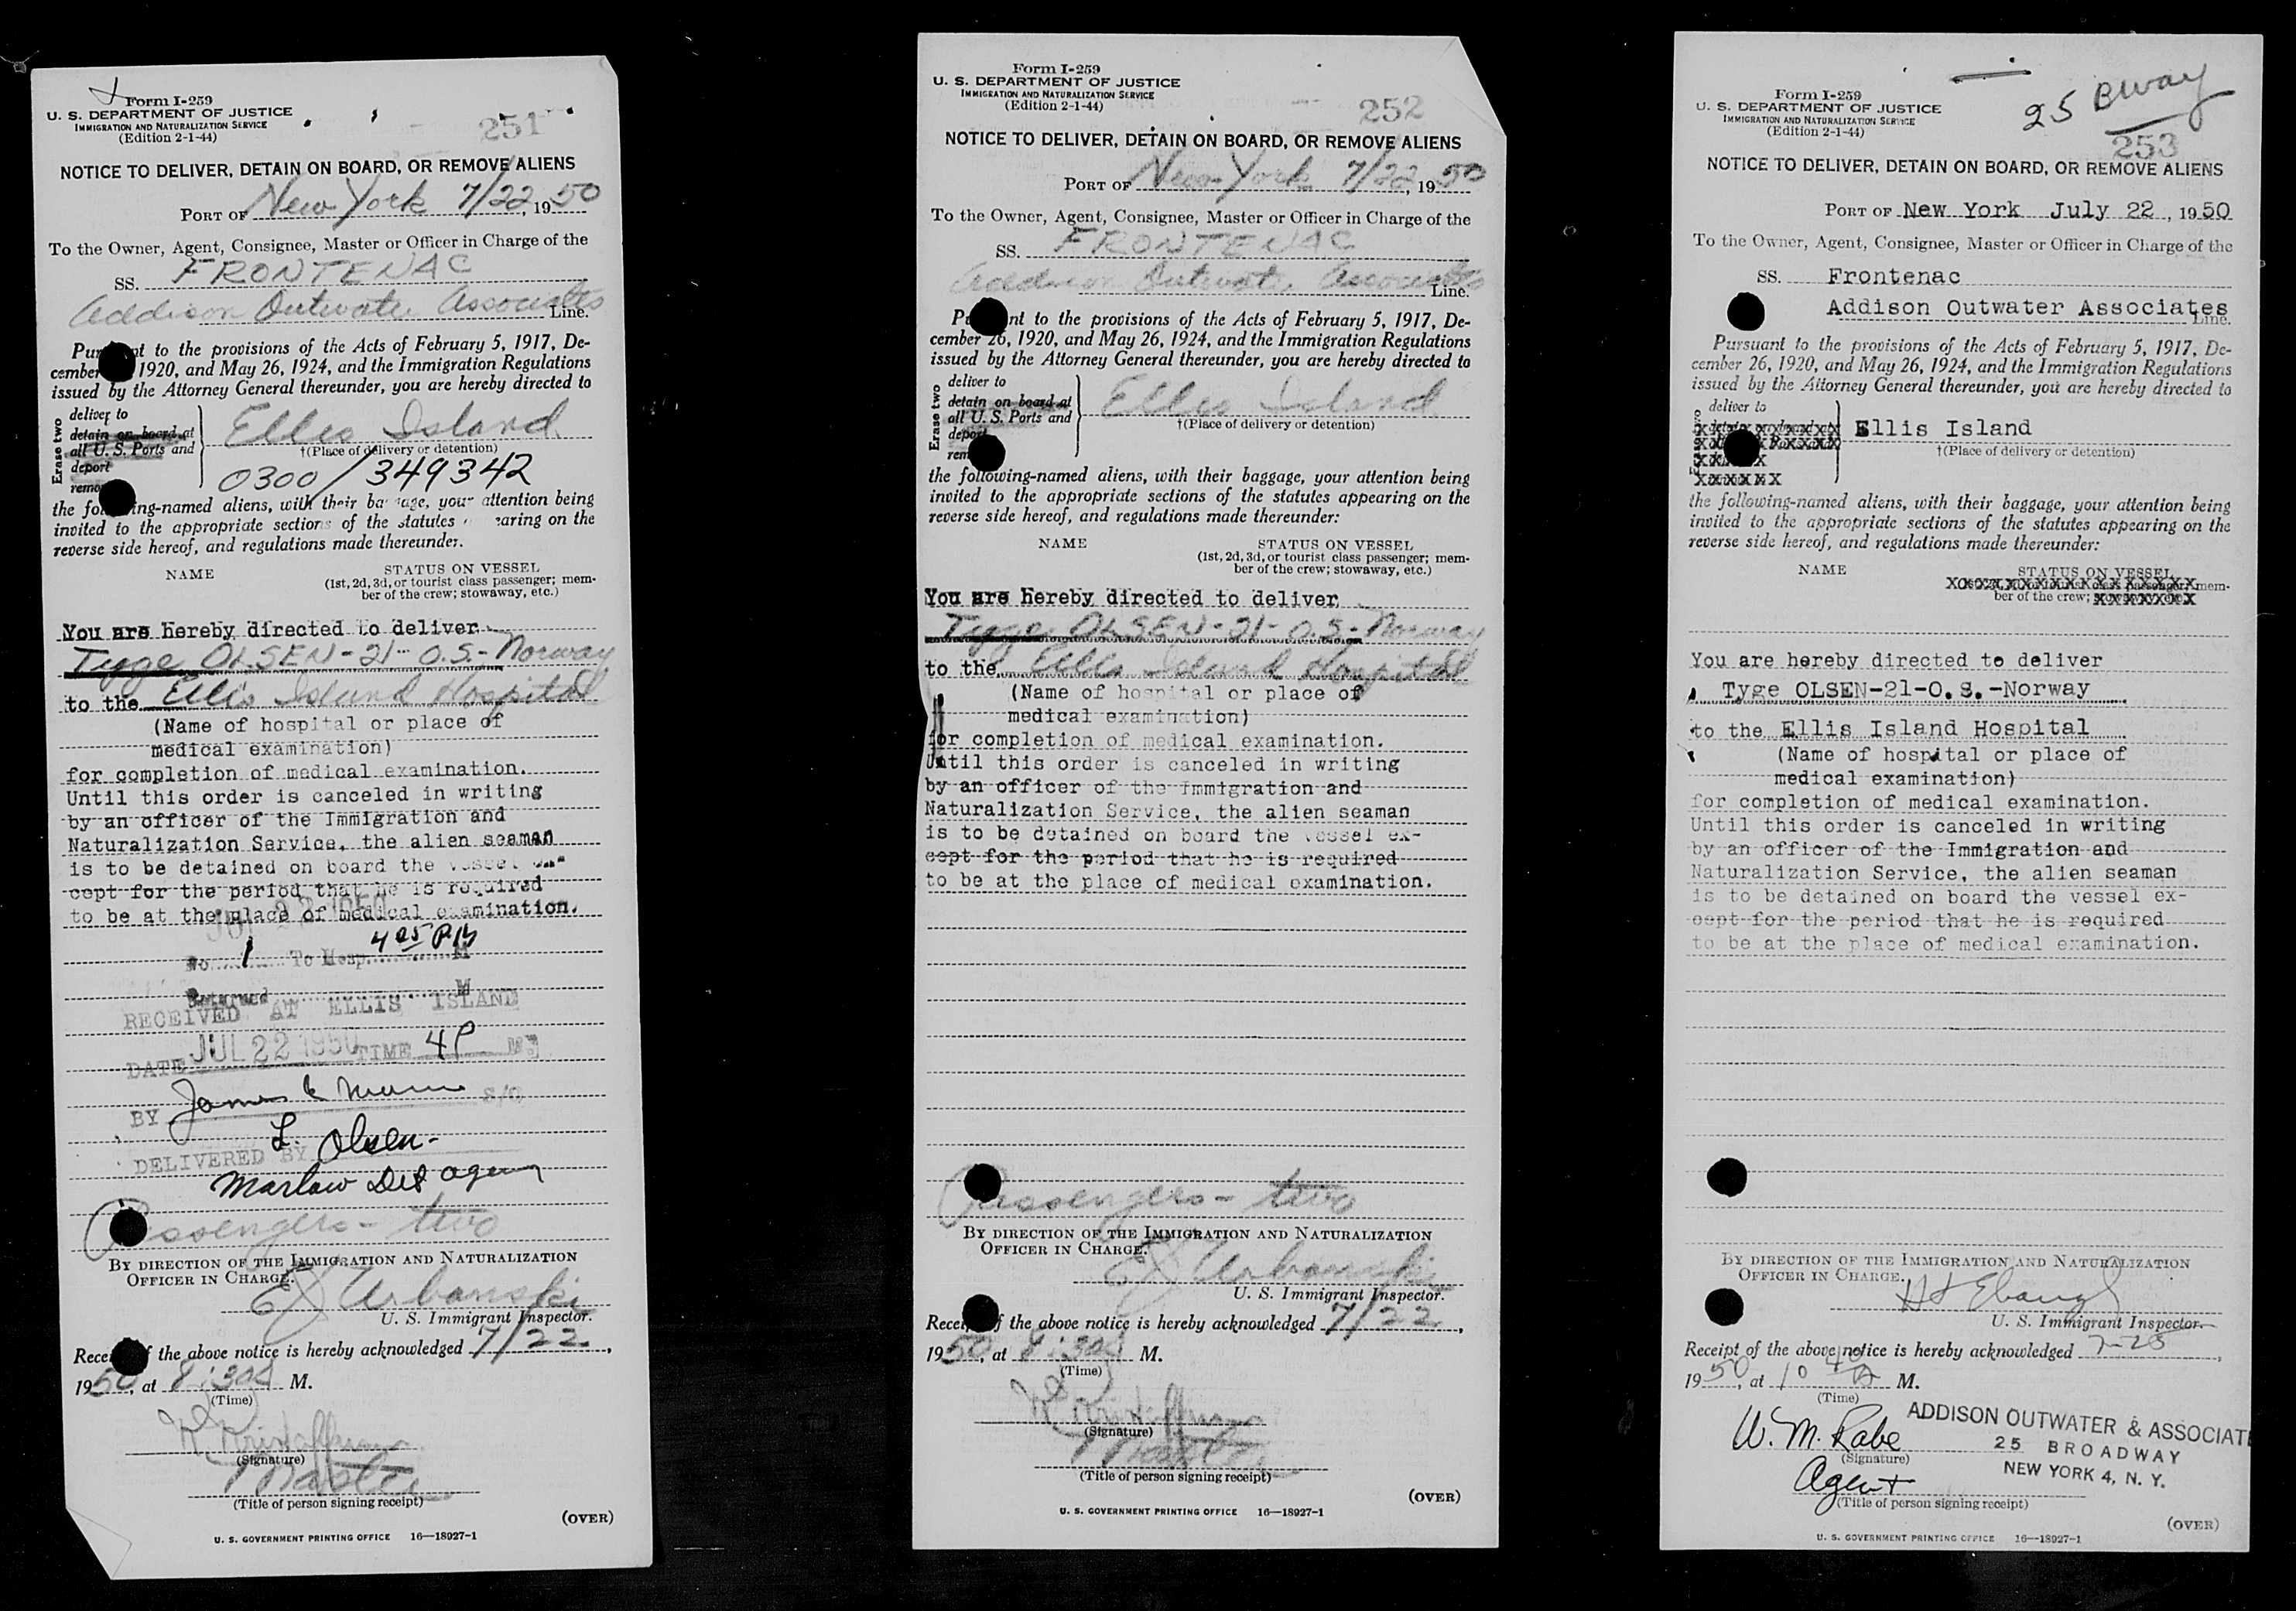 Form I-259
U. S. DEPARTMENT OF JUSTICE
IMMIGRATION AND NATURALIZATION SERVICE
(Edition 2-1-44)
251
NOTICE TO DELIVER, DETAIN ON BOARD, OR REMOVE ALIENS
PORT OF New York 7/22, 1950
To the Owner, Agent, Consignee, Master or Officer in Charge of the
SS. FRONTENAC
Addison Outwater Associates Line.
Pur nt to the provisions of the Acts of February 5, 1917, De-
cember 1920, and May 26, 1924, and the Immigration Regulations
issued by the Attorney General thereunder, you are hereby directed to
Erase two
deliver to
detain on board at
all U. S. Ports and
deport
remo
Ellis Island
†(Place of delivery or detention)
0300/349342
the fol ing-named aliens, with their baggage, your attention being
invited to the appropriate sections of the statutes appearing on the
reverse side hereof, and regulations made thereunder.
NAME STATUS ON VESSEL
(1st, 2d, 3d, or tourist class passenger; mem-
ber of the crew; stowaway, etc.)
You are hereby directed to deliver
Tyge OLSEN-21-O.S.-Norway
to the Ellis Island Hospital
(Name of hospital or place of
medical examination)
for completion of medical examination.
Until this order is canceled in writing
by an officer of the Immigration and
Naturalization Service, the alien seaman
is to be detained on board the vessel ex-
cept for the period that he is required
to be at the place of medical examination.
JUL 22 1950
No 1 To Hosp. 4 25 PM M
Returned M
RECEIVED AT ELLIS ISLAND
DATE JUL 22 1950 TIME 4P M
BY James E S/O
L. Olsen-
DELIVERED BY
Marlow Det agency
Passengers - two
BY DIRECTION OF THE IMMIGRATION AND NATURALIZATION
OFFICER IN CHARGE.
EJ Urbanski
U. S. Immigrant Inspector.
Recei f the above notice is hereby acknowledged 7/22,
1950, at 8:30A M.
(Time)
K. Kristoffersen
(Signature)
Master
(Title of person signing receipt)
(OVER)
U. S. GOVERNMENT PRINTING OFFICE 16—18927-1
Form I-259
U. S. DEPARTMENT OF JUSTICE
IMMIGRATION AND NATURALIZATION SERVICE
(Edition 2-1-44)
252
NOTICE TO DELIVER, DETAIN ON BOARD, OR REMOVE ALIENS
PORT OF New York 7/22, 1950
To the Owner, Agent, Consignee, Master or Officer in Charge of the
SS. FRONTENAC
Addison Outwater Associates Line.
Pu nt to the provisions of the Acts of February 5, 1917, De-
cember 26, 1920, and May 26, 1924, and the Immigration Regulations
issued by the Attorney General thereunder, you are hereby directed to
Erase two
deliver to
detain on board at
all U. S. Ports and
deport
rem
Ellis Island
†(Place of delivery or detention)
the following-named aliens, with their baggage, your attention being
invited to the appropriate sections of the statutes appearing on the
reverse side hereof, and regulations made thereunder:
NAME STATUS ON VESSEL
(1st, 2d, 3d, or tourist class passenger; mem-
ber of the crew; stowaway, etc.)
You are hereby directed to deliver
Tyge OLSEN-21-O.S.-Norway
to the Ellis Island Hospital
(Name of hospital or place of
medical examination)
for completion of medical examination.
Until this order is canceled in writing
by an officer of the Immigration and
Naturalization Service, the alien seaman
is to be detained on board the vessel ex-
cept for the period that he is required
to be at the place of medical examination.
Passengers - two
BY DIRECTION OF THE IMMIGRATION AND NATURALIZATION
OFFICER IN CHARGE.
EJ Urbanski
U. S. Immigrant Inspector.
Recei f the above notice is hereby acknowledged 7/22,
1950, at 8:30A M.
(Time)
K. Kristoffersen
(Signature)
Master
(Title of person signing receipt)
(OVER)
U. S. GOVERNMENT PRINTING OFFICE 16—18927-1
25 Bway
Form I-259
U. S. DEPARTMENT OF JUSTICE
IMMIGRATION AND NATURALIZATION SERVICE
(Edition 2-1-44)
253
NOTICE TO DELIVER, DETAIN ON BOARD, OR REMOVE ALIENS
PORT OF New York July 22, 1950
To the Owner, Agent, Consignee, Master or Officer in Charge of the
SS. Frontenac
Addison Outwater Associates Line.
Pursuant to the provisions of the Acts of February 5, 1917, De-
cember 26, 1920, and May 26, 1924, and the Immigration Regulations
issued by the Attorney General thereunder, you are hereby directed to
deliver to
Ellis Island
†(Place of delivery or detention)
the following-named aliens, with their baggage, your attention being
invited to the appropriate sections of the statutes appearing on the
reverse side hereof, and regulations made thereunder:
NAME STATUS ON VESSEL
mem-
ber of the crew;
You are hereby directed to deliver
Tyge OLSEN-21-O.S.-Norway
to the Ellis Island Hospital
(Name of hospital or place of
medical examination)
for completion of medical examination.
Until this order is canceled in writing
by an officer of the Immigration and
Naturalization Service, the alien seaman
is to be detained on board the vessel ex-
cept for the period that he is required
to be at the place of medical examination.
BY DIRECTION OF THE IMMIGRATION AND NATURALIZATION
OFFICER IN CHARGE.
U. S. Immigrant Inspector.
Receipt of the above notice is hereby acknowledged 7-25,
1950, at 10 40 A M.
(Time)
W. M. Rabe
(Signature)
Agent
(Title of person signing receipt)
ADDISON OUTWATER & ASSOCIAT
25 BROADWAY
NEW YORK 4, N. Y.
(OVER)
U. S. GOVERNMENT PRINTING OFFICE 16—18927-1